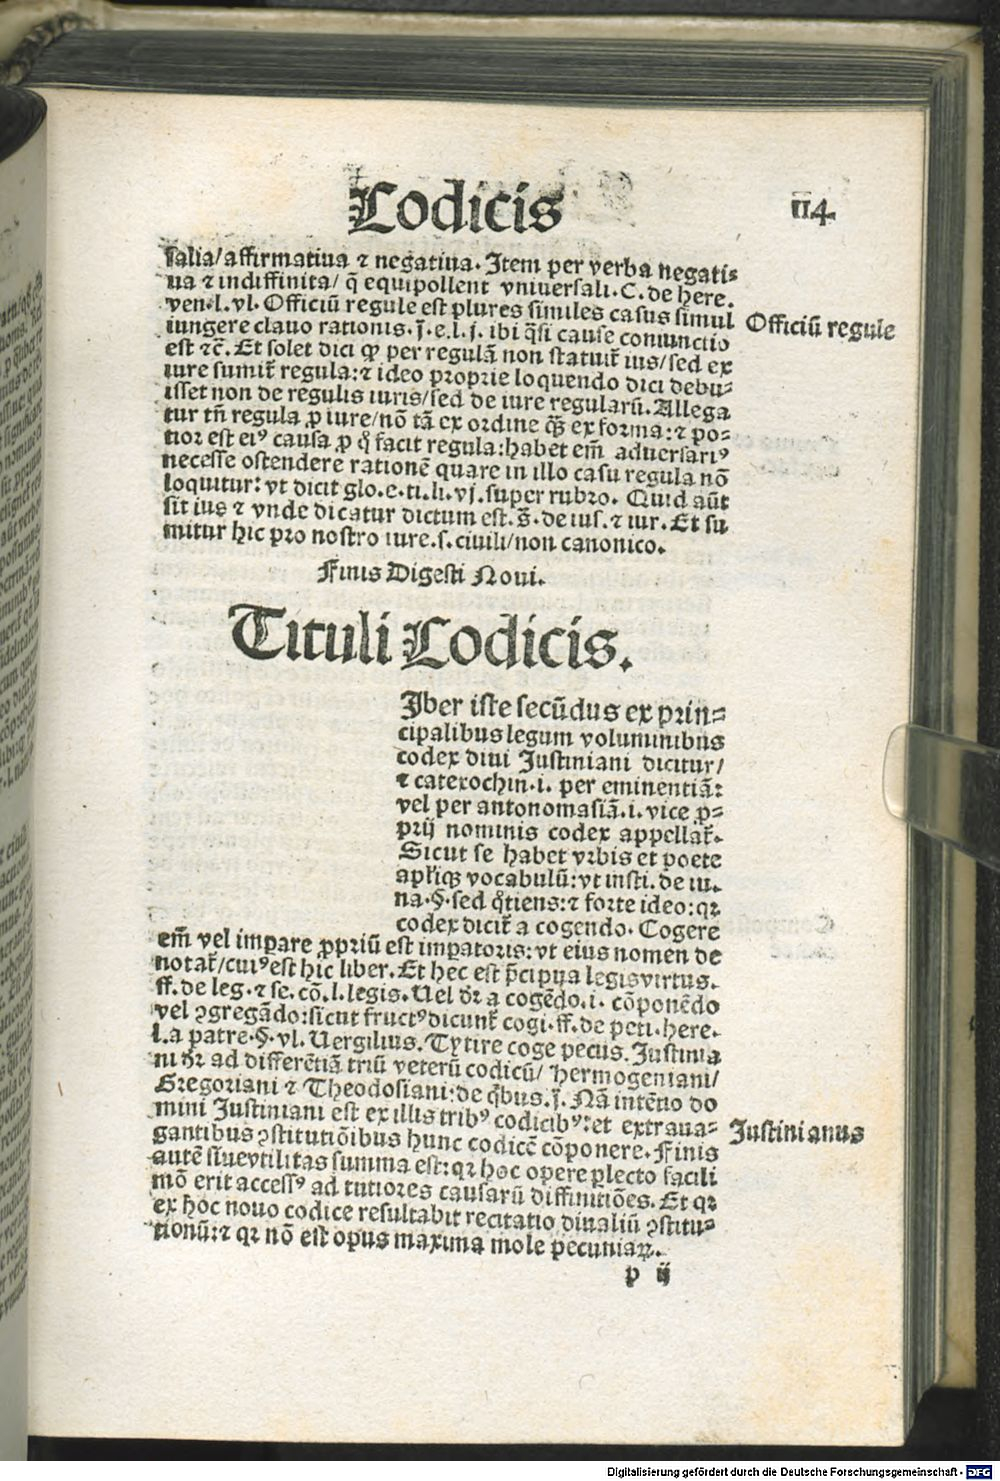 Codicis
114.
salia/affirmatiua ⁊ negatiua. Item per verba negati⸗
ua ⁊ indiffinita/ q̄ equipollent vniuersali. C. de here.
ven. l. vl. Officiū regule est plures similes casus simul
Officiū regule
iungere clauo rationis. j̄. e. l. j. ibi q̄si cause coniunctio
est ⁊c̄. Et solet dici ꝙ per regulā non statuit̃ ius/sed ex
iure sumit̃ regula: ⁊ ideo proprie loquendo dici debu⸗
isset non de regulis iuris/sed de iure regularū. Allega
tur tn̄ regula ꝓ iure/nō tā ex ordine q̄ꝫ ex forma: ⁊ po⸗
tior est eiꝰ causa ꝓ q̊ facit regula: habet em̄ aduersariꝰ
necesse ostendere rationē quare in illo casu regula nō
loquitur: vt dicit glo. e. ti. li. vj. super rubro. Quid aūt
sit ius ⁊ vnde dicatur dictum est. s̄. de ius. ⁊ iur. Et su
mitur hic pro nostro iure. s. ciuili/non canonico.
Finis Digesti Noui.
Tituli Codicis.
Iber iste secūdus ex prin⸗
cipalibus legum voluminibus
codex diui Justiniani dicitur/
⁊ caterochin. i. per eminentiā:
vel per antonomasiā. i. vice ꝓ⸗
prij nominis codex appellat̃.
Sicut se habet vrbis et poete
apł'iqꝫ vocabulū: vt insti. de iu.
na. §. sed q̊tiens: ⁊ forte ideo: qꝛ
codex dicit̃ a cogendo. Cogere
em̄ vel imꝑare ꝓpriū est imꝑatoris: vt eius nomen de
notat̃/cuiꝰ est hic liber. Et hec est p̄cipua legis virtus.
ff. de leg. ⁊ se. cō. l. legis. Uel dr̄ a cogēdo. i. cōponēdo
vel ꝯgregādo: sicut fructꝰ dicunt̃ cogi. ff. de peti. here.
l. a patre. §. vl. Uergilius. Tytire coge pecus. Justinia
ni dr̄ ad differētiā triū veterū codicū/ Hermogeniani/
Gregoriani ⁊ Theodosiani: de q̊bus. j̄. Nā intētio do
mini Justiniani est ex illis tribꝰ codicibꝰ: et extraua⸗
Justinianus
gantibus ꝯstitutiōibus hunc codicē cōponere. Finis
autē siue vtilitas summa est: qꝛ hoc opere ꝑlecto facili
mō erit accessꝰ ad tutiores causarū diffinitiōes. Et qꝛ
ex hoc nouo codice resultabit recitatio diualiū ꝯstitu⸗
tionū: ⁊ qꝛ nō est opus maxima mole pecuniaꝝ.
p ij
Digitalisierung gefördert durch die Deutsche Forschungsgemeinschaft - DFG